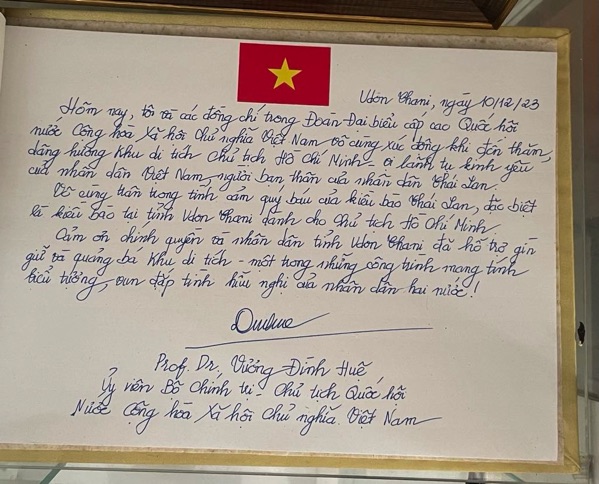 Udon Thani, ngày 10/12/23
Hôm nay, tôi và các đồng chí trong Đoàn Đại biểu cấp cao Quốc hội
nước Cộng hòa Xã hội Chủ nghĩa Việt Nam vô cùng xúc động khi đến thăm,
dâng hương Khu di tích Chủ tịch Hồ Chí Minh - vị lãnh tụ kính yêu
của nhân dân Việt Nam, người bạn thân của nhân dân Thái Lan.
Vô cùng trân trọng tình cảm quý báu của kiều bào Thái Lan, đặc biệt
là kiều bào tại tỉnh Udon Thani dành cho Chủ tịch Hồ Chí Minh.
Cảm ơn chính quyền và nhân dân tỉnh Udon Thani đã hỗ trợ gìn
giữ và quảng bá Khu di tích - một trong những công trình mang tính
biểu tượng, vun đắp tình hữu nghị của nhân dân hai nước!
Prof. Dr. Vương Đình Huệ
Ủy viên Bộ Chính trị - Chủ tịch Quốc hội
Nước Cộng hòa Xã hội Chủ nghĩa Việt Nam